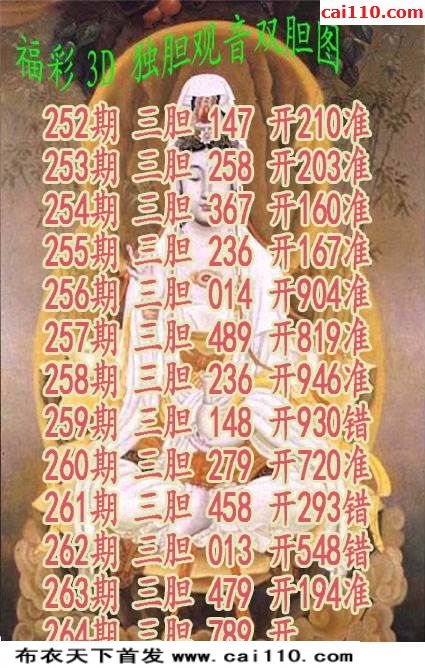 www.
cai110.com
福彩3D 独胆观音双胆图
252期 三胆 147 开210准
253期 三胆 258 开203准
254期 三胆 367 开160准
255期 三胆 236 开167准
256期 三胆 014 开904准
257期 三胆 489 开819准
258期 三胆 236 开946准
259期 三胆 148 开930错
260期 三胆 279 开720准
261期 三胆 458 开293错
262期 三胆 013 开548错
263期 三胆 479 开194准
264期 三胆 789 开
布衣天下首发 www.cai110.com